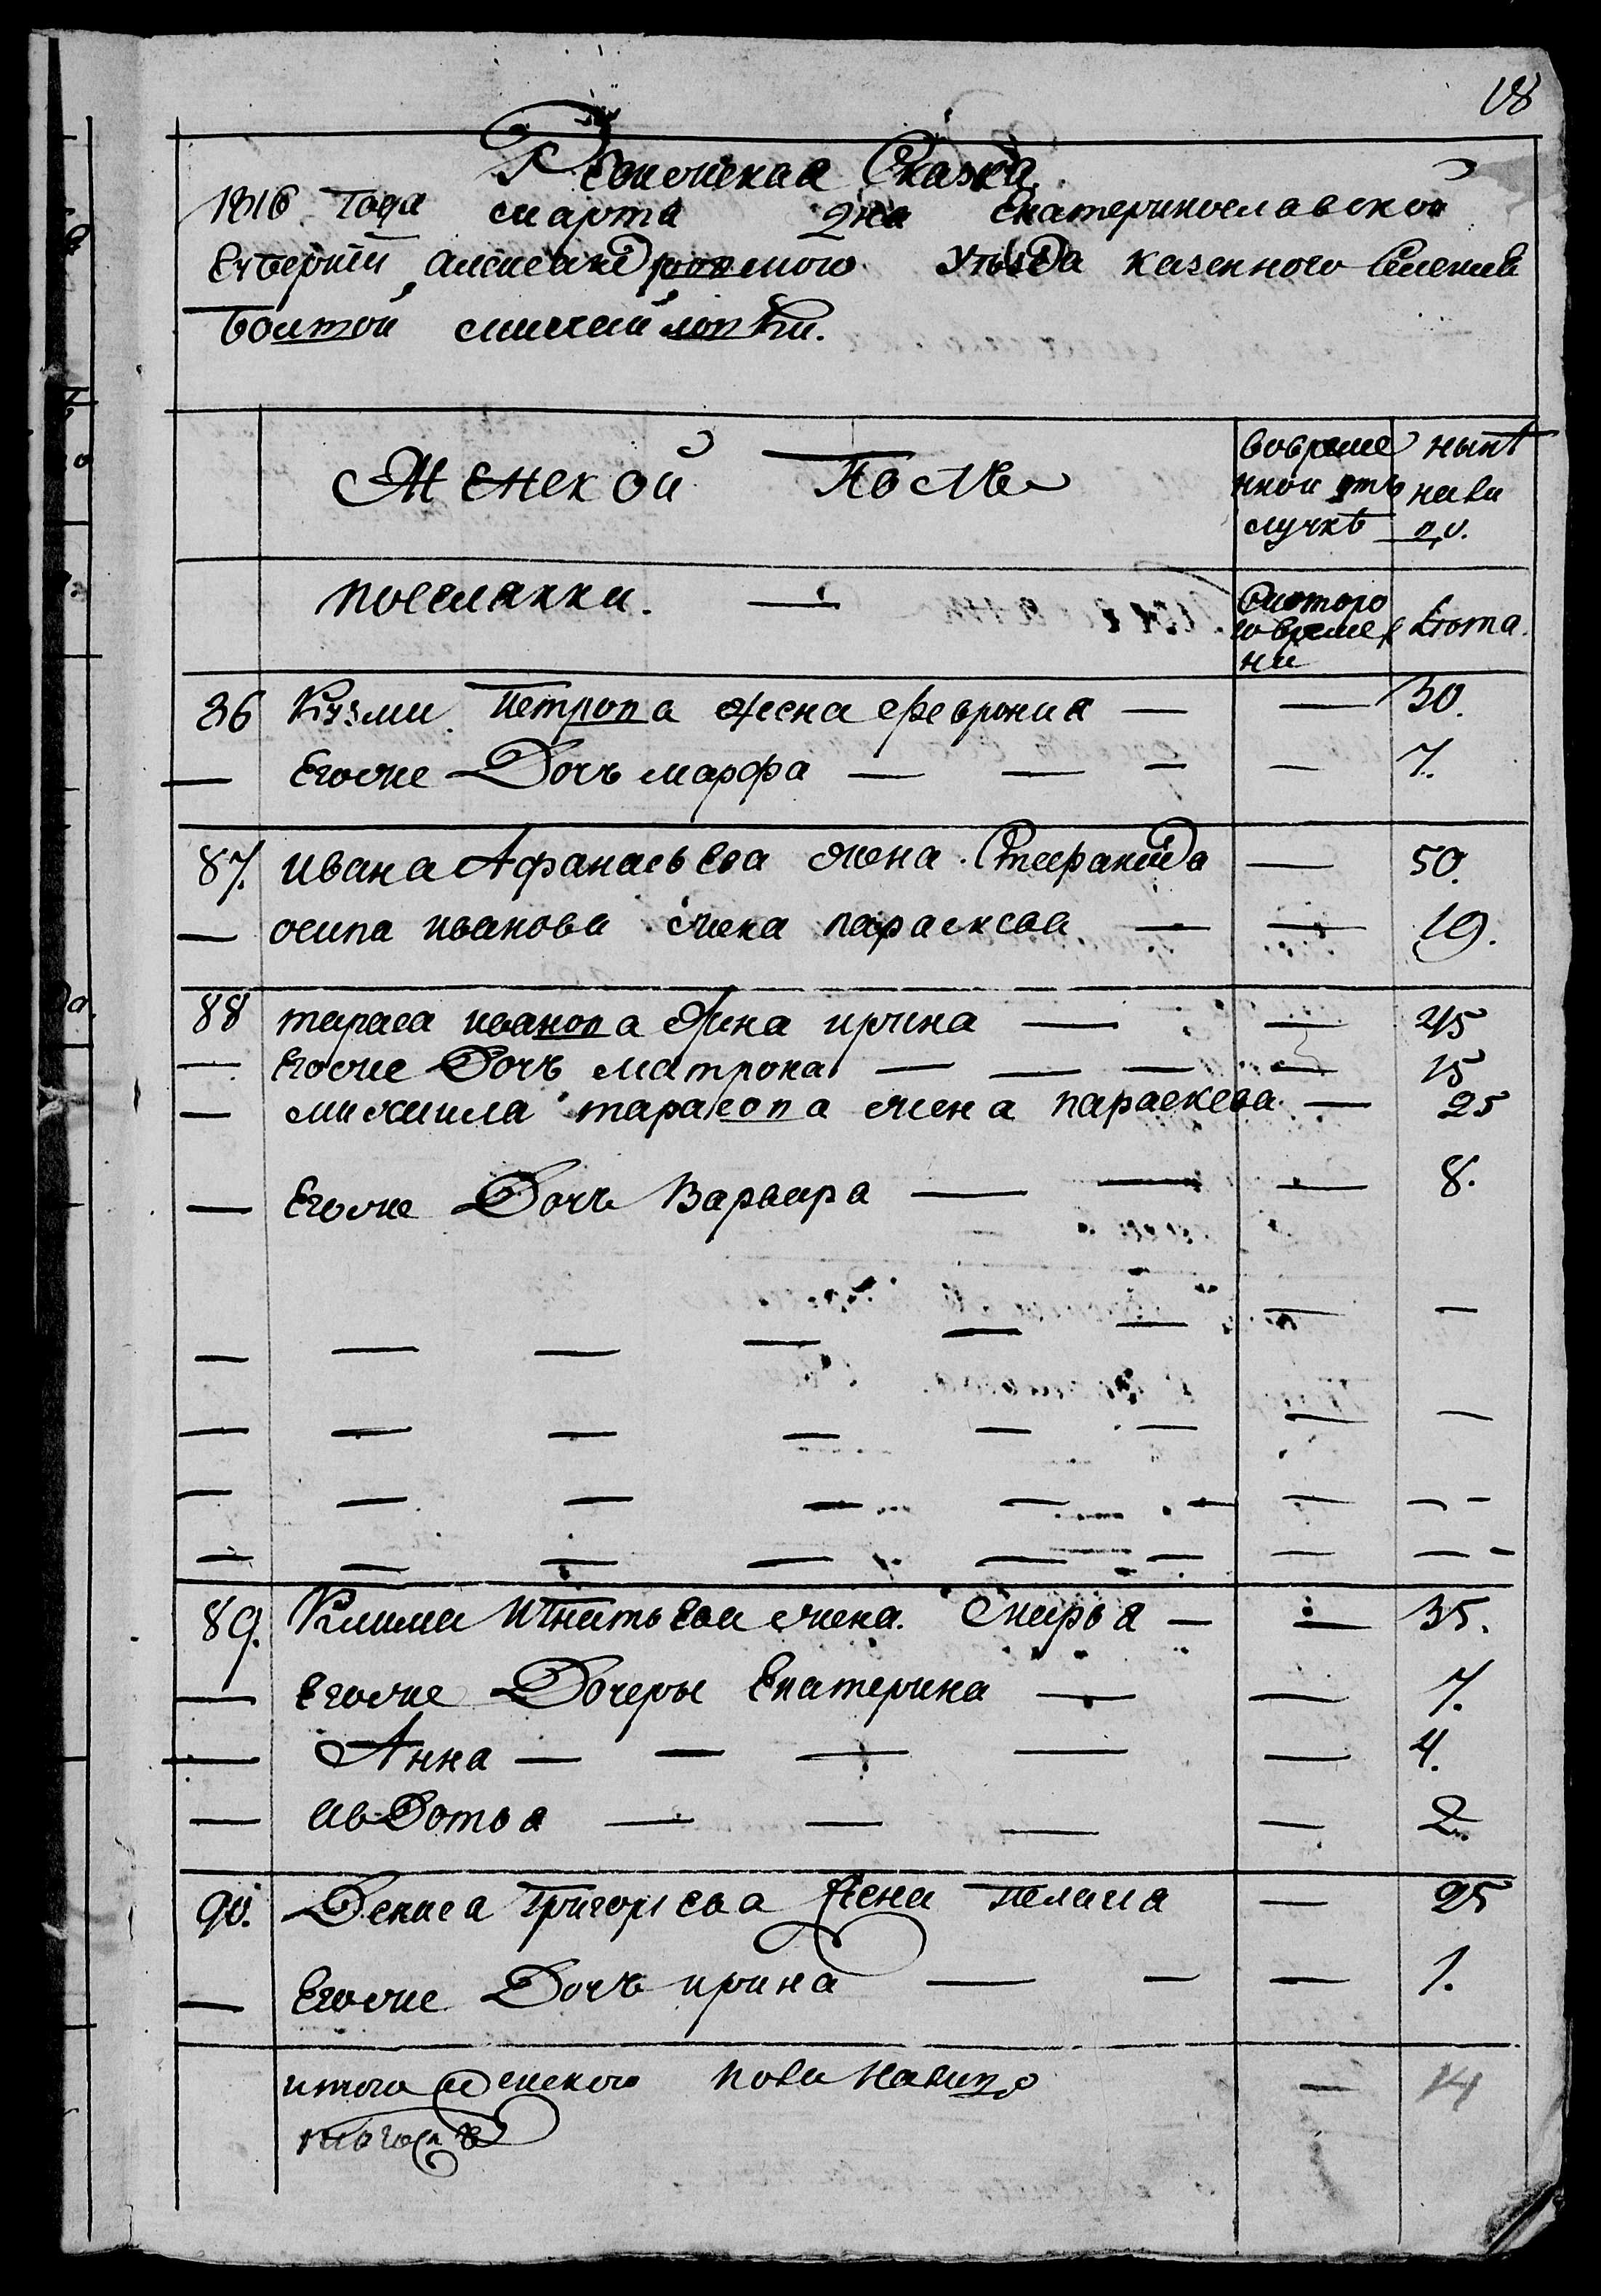 18
Ревижская Сказка
1816 года марта дня Екатеринославской
Губернiи Александровского Уезда казенного Селения
Болтой михайловки.
Женской Полъ
вовреме нной отъ лучкѣ
нынѣ на ли цо.
поселянки. —
Скоторого времени
Лѣта.
86 Кузми Петрова жена Феврония — — 30.
— Егоже Дочь марфа — — — — 7.
87. ивана Афанасьева жена Стефанида — 50.
— осипа иванова жена параскева — — 19.
88 тараса иванова жена ирина — — 45
— Егоже Дочь матрона — — — — 15
— михаила тарасова жена параскева — 25
— Егоже Дочь Варвара — — — 8.
— — — — — — — —
— — — — — — — —
— — — — — — — — -
— — — — — — — — -
89. Клима Игнатьева жена. Марья — — 35.
— Егоже Дочеры Екатерина — — 7.
— Анна — — — — — 4.
— Авдотья — — — — 2.
90. Дениса Григорьева жена Пелагия — 25
— Егоже Дочь ирина — — — 1.
итого женского пола налицо — 14